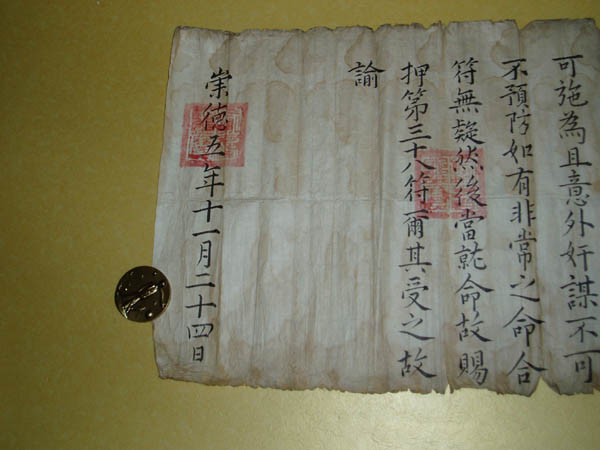 可施為且意外奸謀不可
不預防如有非常之命合
符無疑然後當就命故賜
押第三十八符爾其受之故
諭
崇德五年十一月二十四日